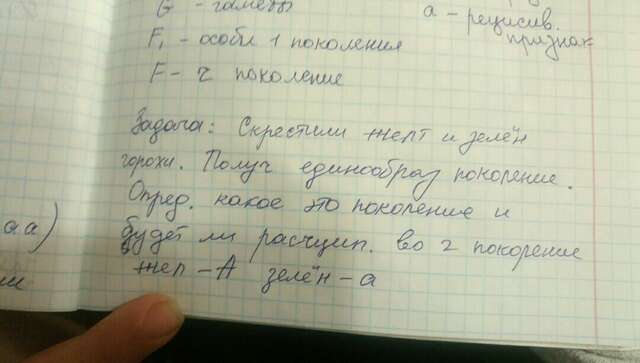 G - гаметы
а - рецисив.
признак
F₁ - особи 1 поколения
F - 2 поколение
Задача: Скрестили желт и зелён
горохи. Получ единообраз поколение.
Опред. какое это поколение и
аа)
будет ли расчцип. во 2 покорение
жел - А зелён - а